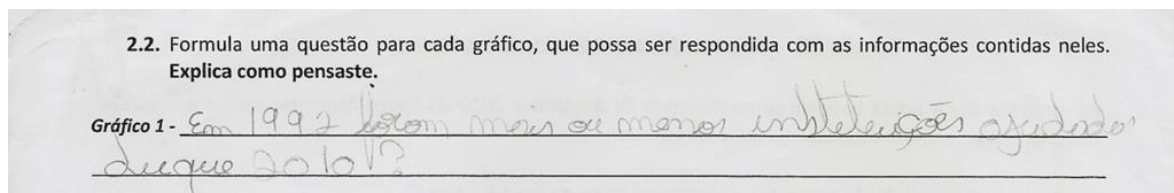 2.2. Formula uma questão para cada gráfico, que possa ser respondida com as informações contidas neles.
Explica como pensaste.
Gráfico 1 - Em 1992 foram mais ou menos instetuições ajudados
duque 2010?